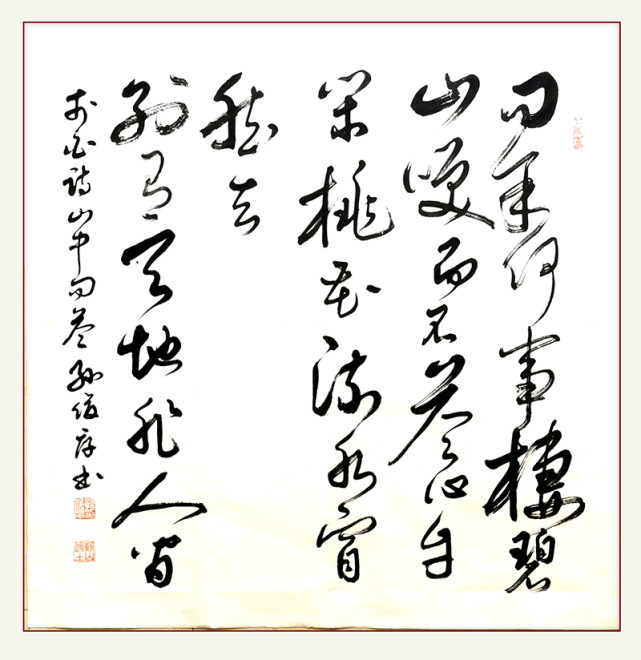 问余何事棲碧
山咲而不答心自
闲桃花流水窅
然去
别有天地非人间
李白诗山中问答 孙 书